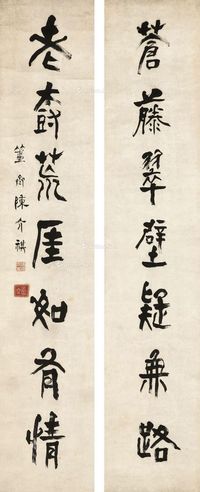 蒼藤翠壁疑無路
老樹荒厓如有情
簠齋陳介祺